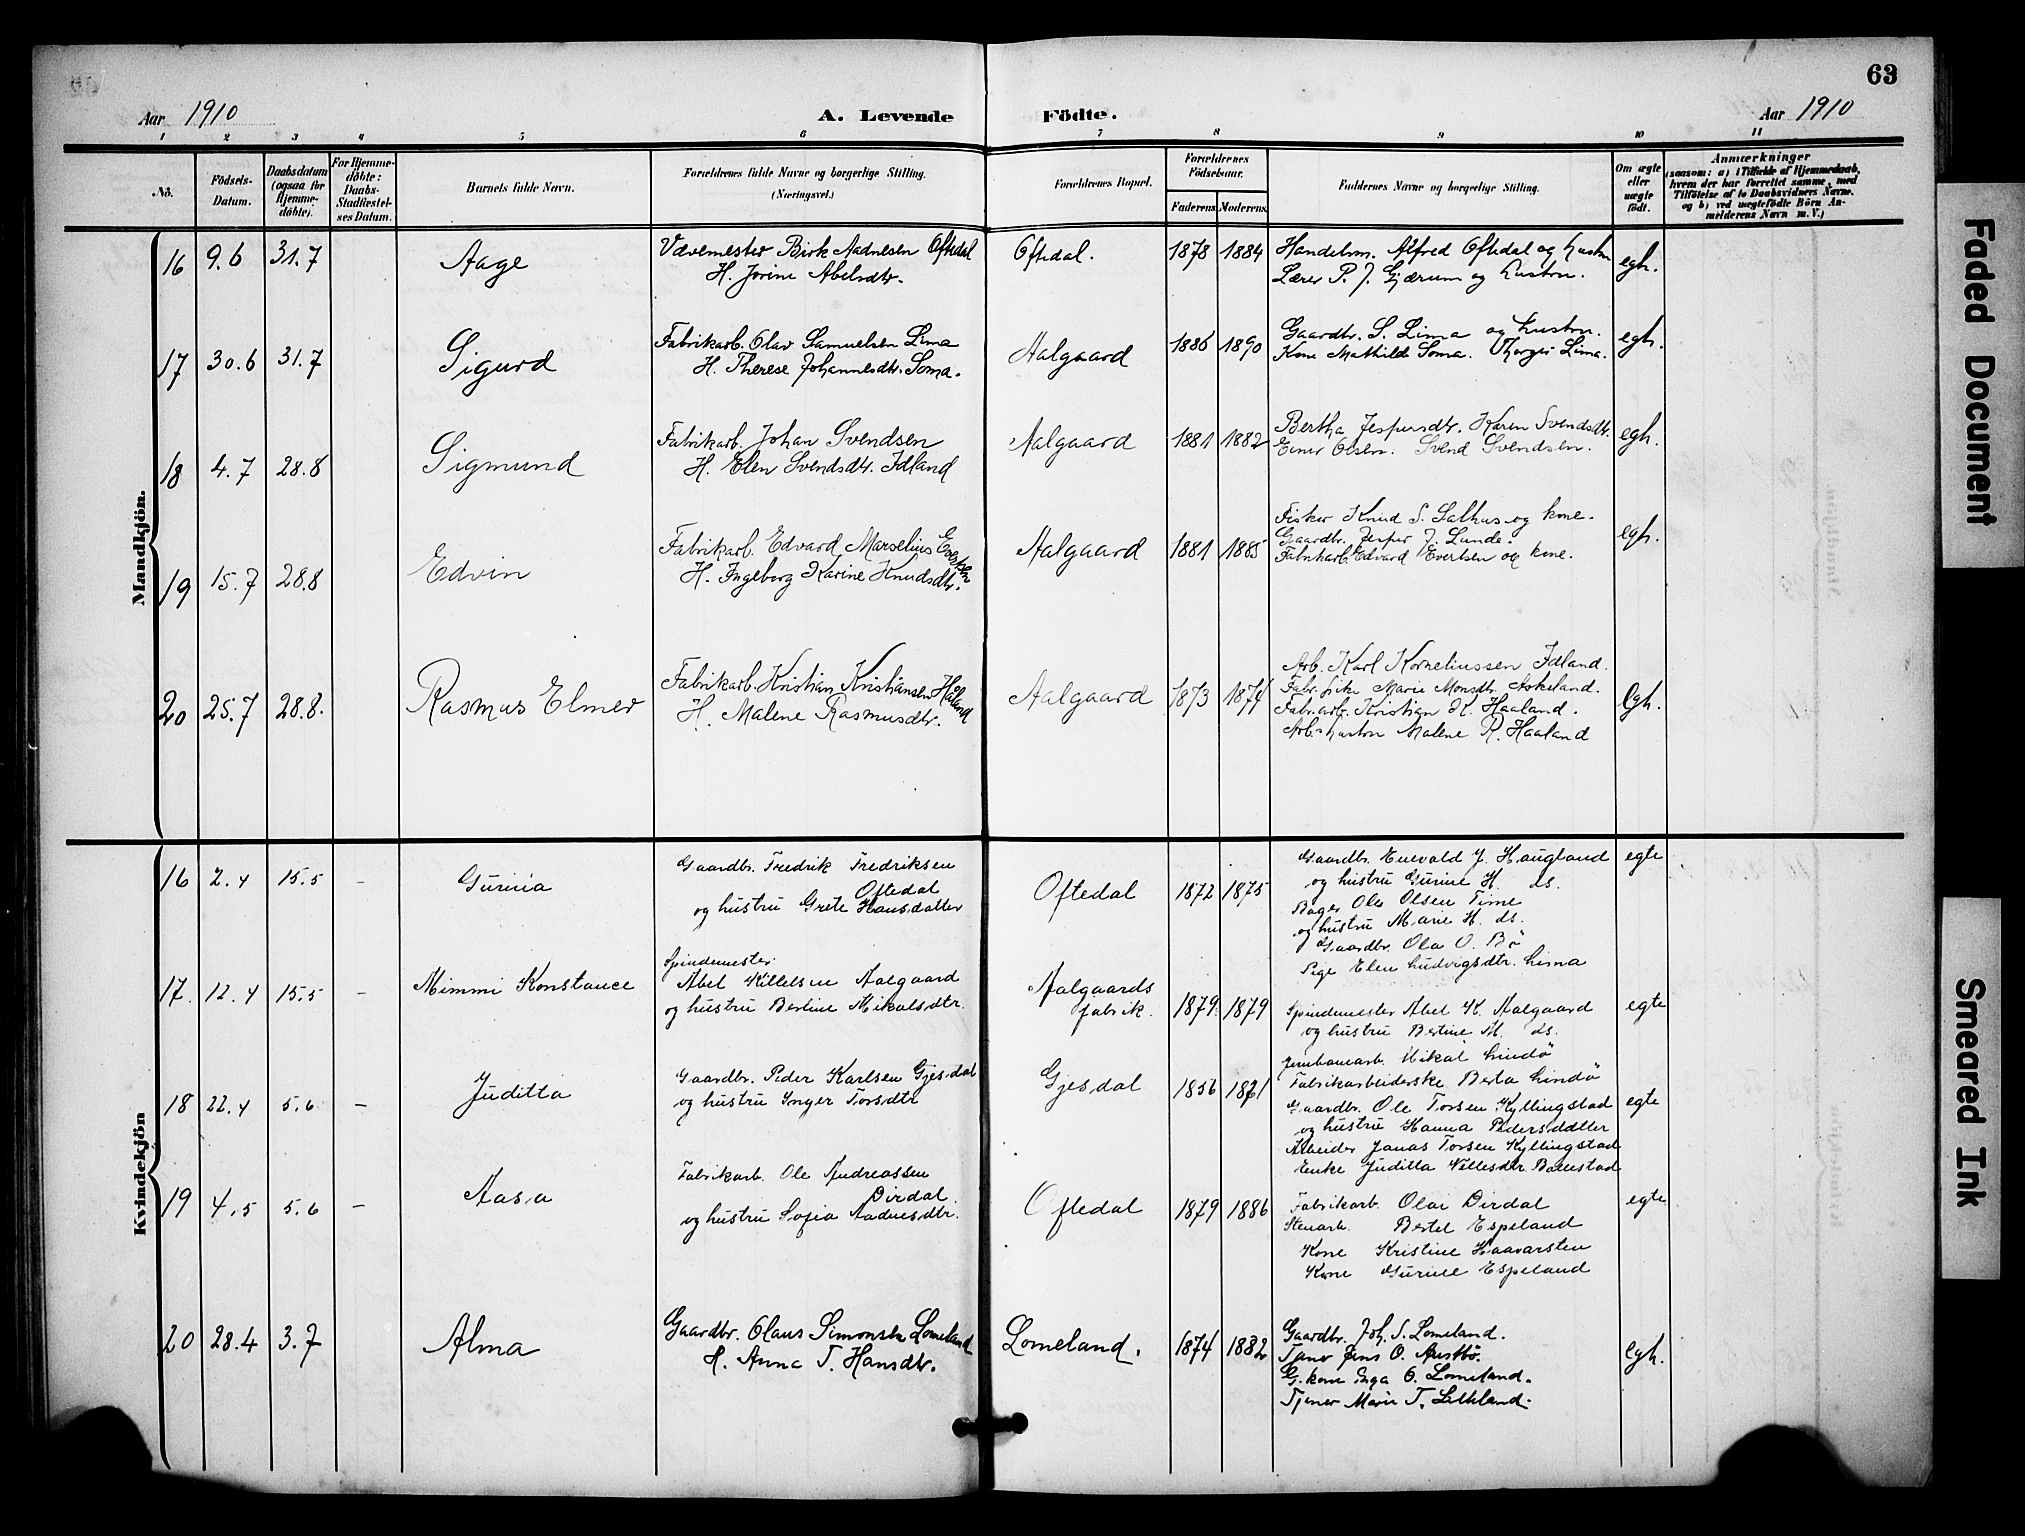 63
Aar 1910
A. Levende Födte.
Aar 1910
1 2 3 4 5 6 7 8 9 10 11
No.
Födsels-Datum.
Daabsdatum (ogsaa for Hjemmedöbte).
For Hjemmedöbte: Daabs-Stadfæstelses Datum.
Barnets fulde Navn.
Forældrenes fulde Navne og borgerlige Stilling.
(Næringsvei.)
Forældrenes Bopæl.
Forældrenes Födselsaar.
Faderens Moderens.
Faddernes Navne og borgerlige Stilling.
Om ægte eller uægte födt.
Anmærkninger
(saasom: a) i Tilfælde af Hjemmedaab, hvem der har forrettet samme, med Tilföielse af to Daabsvidners Navne, og b) ved uægtefödte Börn Anmelderens Navn m. V.)
Mandkjön.
16 9.6 31.7 Aage
Vævemester Birk Aadnesen Oftedal
H. Jorine Abelsdtr.
Oftedal. 1878 1884
Handelsm. Alfred Oftedal og hustru
Lærer P. J. Gjærum og hustru.
egt.
17 30.6 31.7 Sigurd
Fabrikarb. Olav Samuelsen Lima
H. Therese Johannesdtr. Soma.
Aalgaard 1886 1890
Gaardbr. S. Lima og hustru.
Kone Mathilde Soma. Thorger Lima.
egt.
18 4.7 28.8 Sigmund
Fabrikarb. Johan Svendsen
H. Elen Svendsdtr. Idland
Aalgaard 1881 1882
Bertha Jespersdtr. Karen Svendsdtr.
Einer Olsen. Svend Svendsen.
egt.
19 15.7 28.8 Edvin
Fabrikarb. Edvard Marselius Evertsen
H. Ingeborg Karine Knudsdtr.
Aalgaard 1881 1885
Fisker Knud S. Salhus og kone.
Gaardbr. Jesper J. Lunde.
Fabrikarb. Edvard Evertsen og kone.
egt.
20 25.7 28.8. Rasmus Elmer
Fabrikarb. Kristian Kristiansen Haaland
H. Malene Rasmusdtr.
Aalgaard 1873 1874
Arb. Karl Korneliussen Idland.
Fabr.pike Marie Monsdtr. Askeland.
Fabr.arb. Kristian K. Haaland.
Arb. hustru Malene R. Haaland
egt.
Kvindekjön
16 2.4 15.5 – Gurina
Gaardbr. Fredrik Fredriksen
Oftedal
og hustru Grete Hansdatter
Oftedal 1872 1875
Gaardbr. Enevald J. Haugland
og hustru Gurine H. ds.
Bager Ole Olsen Time
og hustru Marie H. ds.
Gaardbr. Ola O. Bø
Pige Elen Ludvigsdtr. Lima
egte
17. 12.4 15.5 – Mimmi Konstance
Spindemester
Abel Killelsen Aalgaard
og hustru Bertine Mikalsdtr.
Aalgaards
fabrik. 1879. 1879
Spindemester Abel K. Aalgaard
og hustru Bertine M. ds.
Jernbanearb. Mikal Lindø
Fabrikarbeiderske Berta Lindø
egte
18 22.4 5.6 – Juditta
Gaardbr. Peder Karlsen Gjesdal
og hustru Inger Torsdtr
Gjesdal 1856 1861
Gaardbr. Ole Torsen Kyllingstad
og hustru Hanna Pedersdatter
Arbeider Jonas Torsen Kyllingstad
Enke Juditta Nillesdtr Bollestad
egte
19 4.5 5.6 – Aasa
Fabrikarb. Ole Andreassen
Dirdal
og hustru Sofia Aadnesdtr.
Oftedal 1879 1886
Fabrikarb. Olai Dirdal
Stenarb. Bertel Espeland
Kone Kristine Haavarsten
Kone Gurine Espeland
egte
20 28.4 3.7 Alma
Gaardbr. Olaus Simonsen Lomeland
H. Anna T. Hansdtr.
Lomeland. 1874 1882
Gaardbr. Joh. S. Lomeland.
Tjener Jens O. Austbø.
G. kone Inga O. Lomeland.
Tjener Marie T.
egt.
Faded Document
Smeared Ink